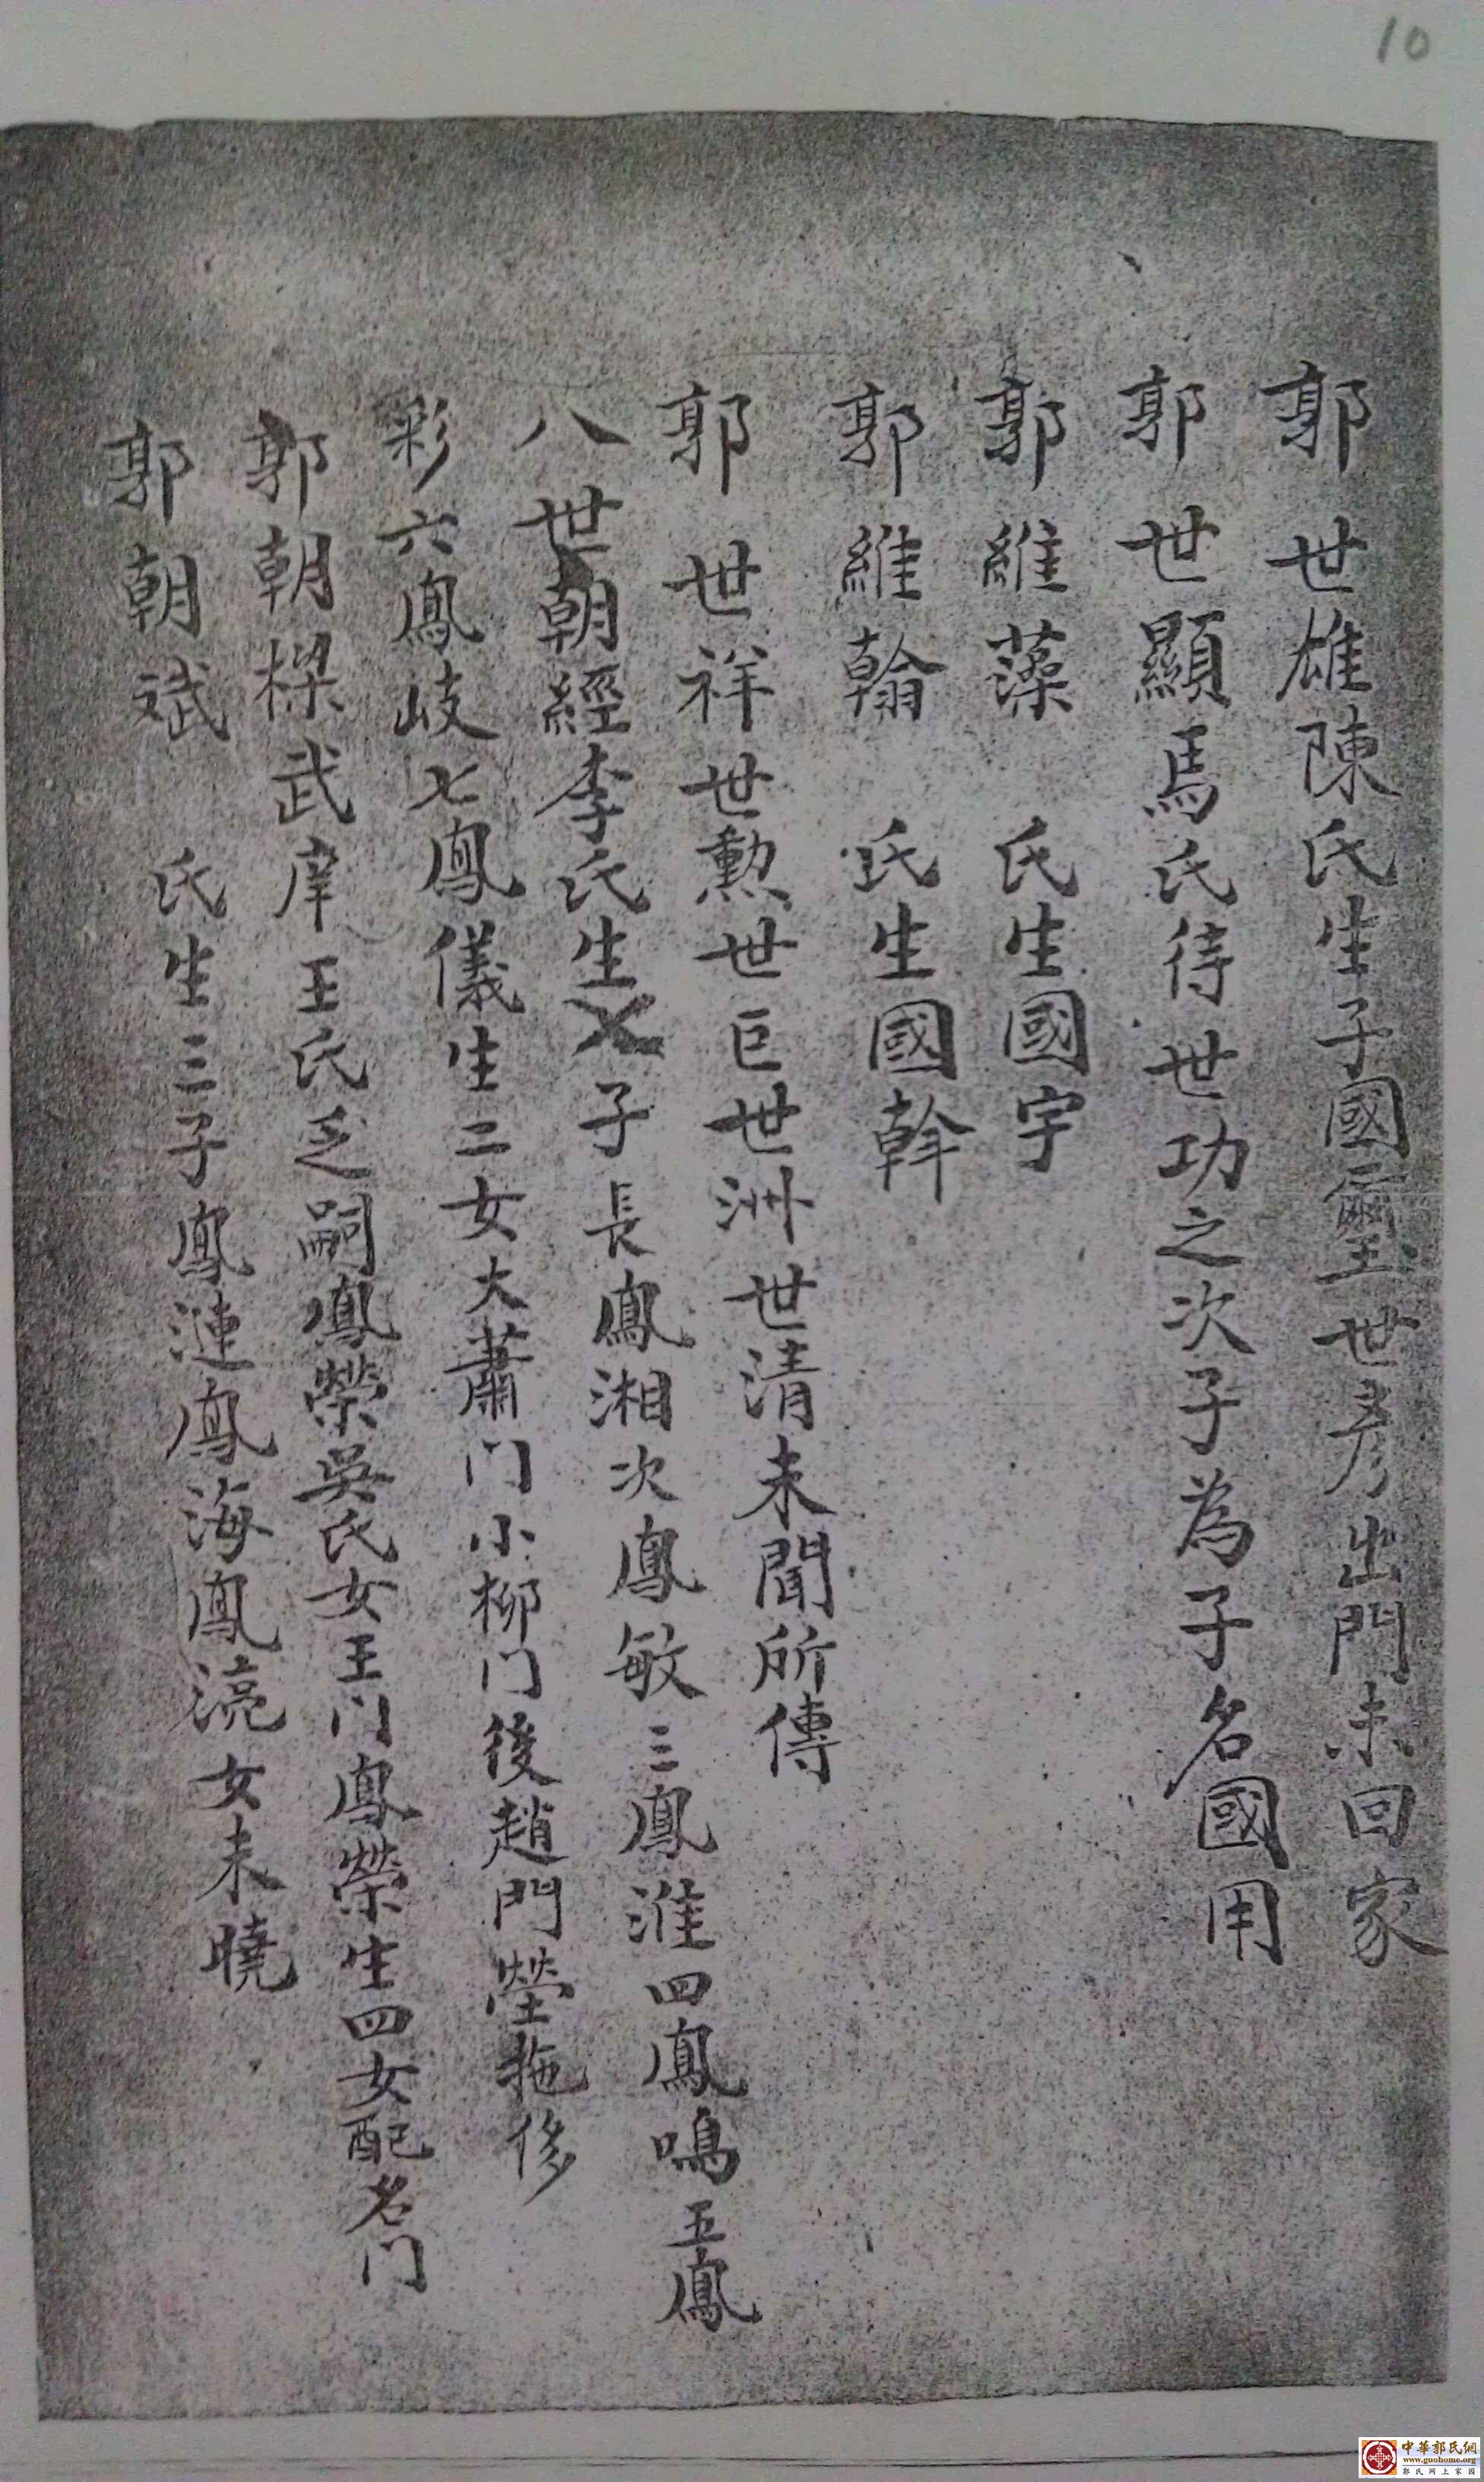 10
郭世雄陳氏生子國璽世彥出門未回家
郭世顯馬氏待世功之次子為子名國用
郭維藻 氏生國宇
郭維翰 氏生國幹
郭世祥世勲世巨世洲世清未聞所傳
八世朝經李氏生 子長鳳湘次鳳敏三鳳淮四鳳鳴五鳳
彩六鳳岐七鳳儀生二女大蕭门小柳门後趙門塋拖修
郭朝樑武庠王氏乏嗣鳳榮吳氏女王门鳳榮生四女配名门
郭朝斌 氏生三子鳳漣鳳海鳳湸女未曉
中華郭氏網
www.guohome.org
郭氏网上家园